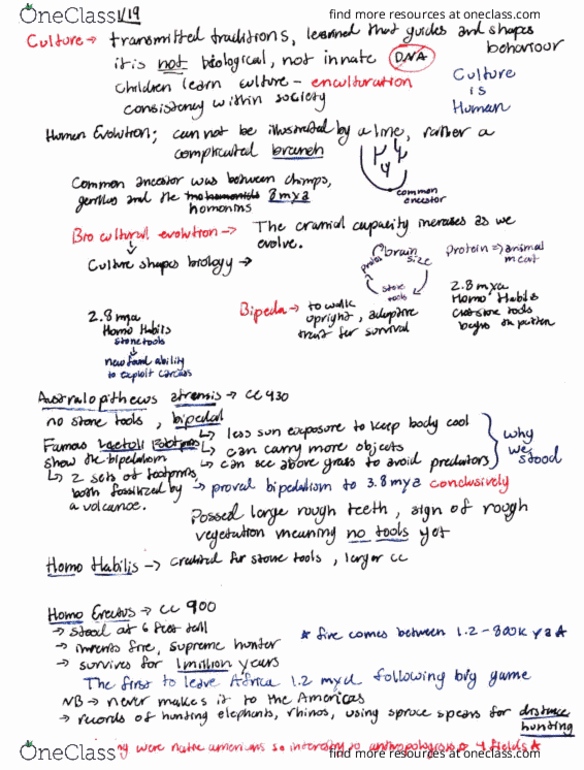 OneClass
find more resources at oneclass.com
1/19
Culture → transmitted traditions, learned that guides and shapes
behaviour
it is not biological, not innate DNA
children learn culture - enculturation
consistency within society
Culture
is
Human
Human Evolution; cannot be illustrated by a line, rather a
complicated branch
common
ancestor
Common ancestor was between chimps,
gorillas and the 8mya
homonins
Bio cultural evolution → The cranial capacity increases as we
evolve.
Culture shapes biology →
brain
size
protein
stone
tools
Protein ⇒ animal
meat
2.8 mya
Homo Habils
stone tools
new found ability
to exploit carcass
Bipeda → to walk
upright, adaptive
trait for survival
2.8 mya
Homo Habils
stone tools
begins the pattern
Australopithecus → cc 430
no stone tools, bipedal
Famous Laetoli Footprints
show the bipedalism
↳ less sun exposure to keep body cool
↳ can carry more objects
↳ can see above grass to avoid predators
why
we
stood
↳ 2 sets of footprints
both fossilized by
a volcanoe.
→ proval bipedalism to 3.8 mya conclusively
Possed large rough teeth, sign of rough
vegetation meaning no tools yet
Homo Habilis → credited for stone tools, larger cc
Homo Erectus → cc 900
→ stood at 6 feet tall
→ invents fire, supreme hunter
→ survives for 1 million years
* fire comes between 1.2 - 800k y a
The first to leave Africa 1.2 mya following big game
NB → never makes it to the Americas
→ records of hunting elephants, rhinos, using spruce spears for distance
hunting
OneClass
were native americans so 4 fields
find more resources at oneclass.com